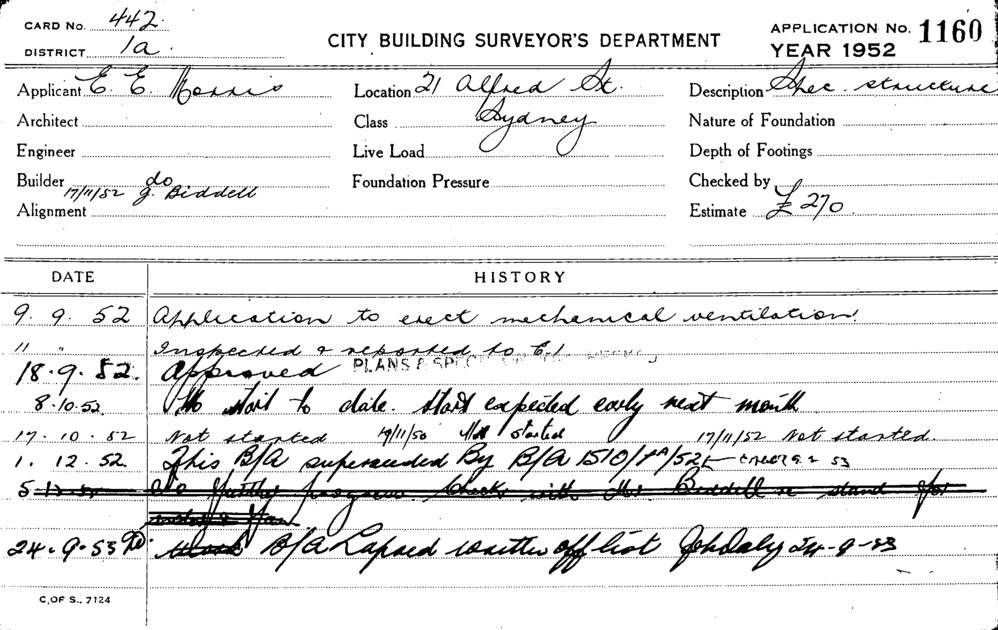 CARD No. 442. CITY BUILDING SURVEYOR'S DEPARTMENT APPLICATION No. 1160
DISTRICT 1a. YEAR 1952
Applicant E. E. Morris Location 21 Alfred St. Description Spec. structure
Architect Class Sydney Nature of Foundation
Engineer Live Load Depth of Footings
Builder do Foundation Pressure Checked by
17/11/52 G. Biddell
Alignment Estimate £ 270
DATE HISTORY
9. 9. 52 Application to erect mechanical ventilation.
" " Inspected & reported to
18.9.52. Approved PLANS &
8.10.52 No start to date. Start expected early next month
17.10.52 Not started Not started 17/11/52 Not started.
1. 12. 52. This B/A superseded By B/A 1510/1A/52
5 No further progress checks with Mr. Biddell stand for
24.9.53 B/A Lapsed written off list 24-9-53
C. OF S.. 7124